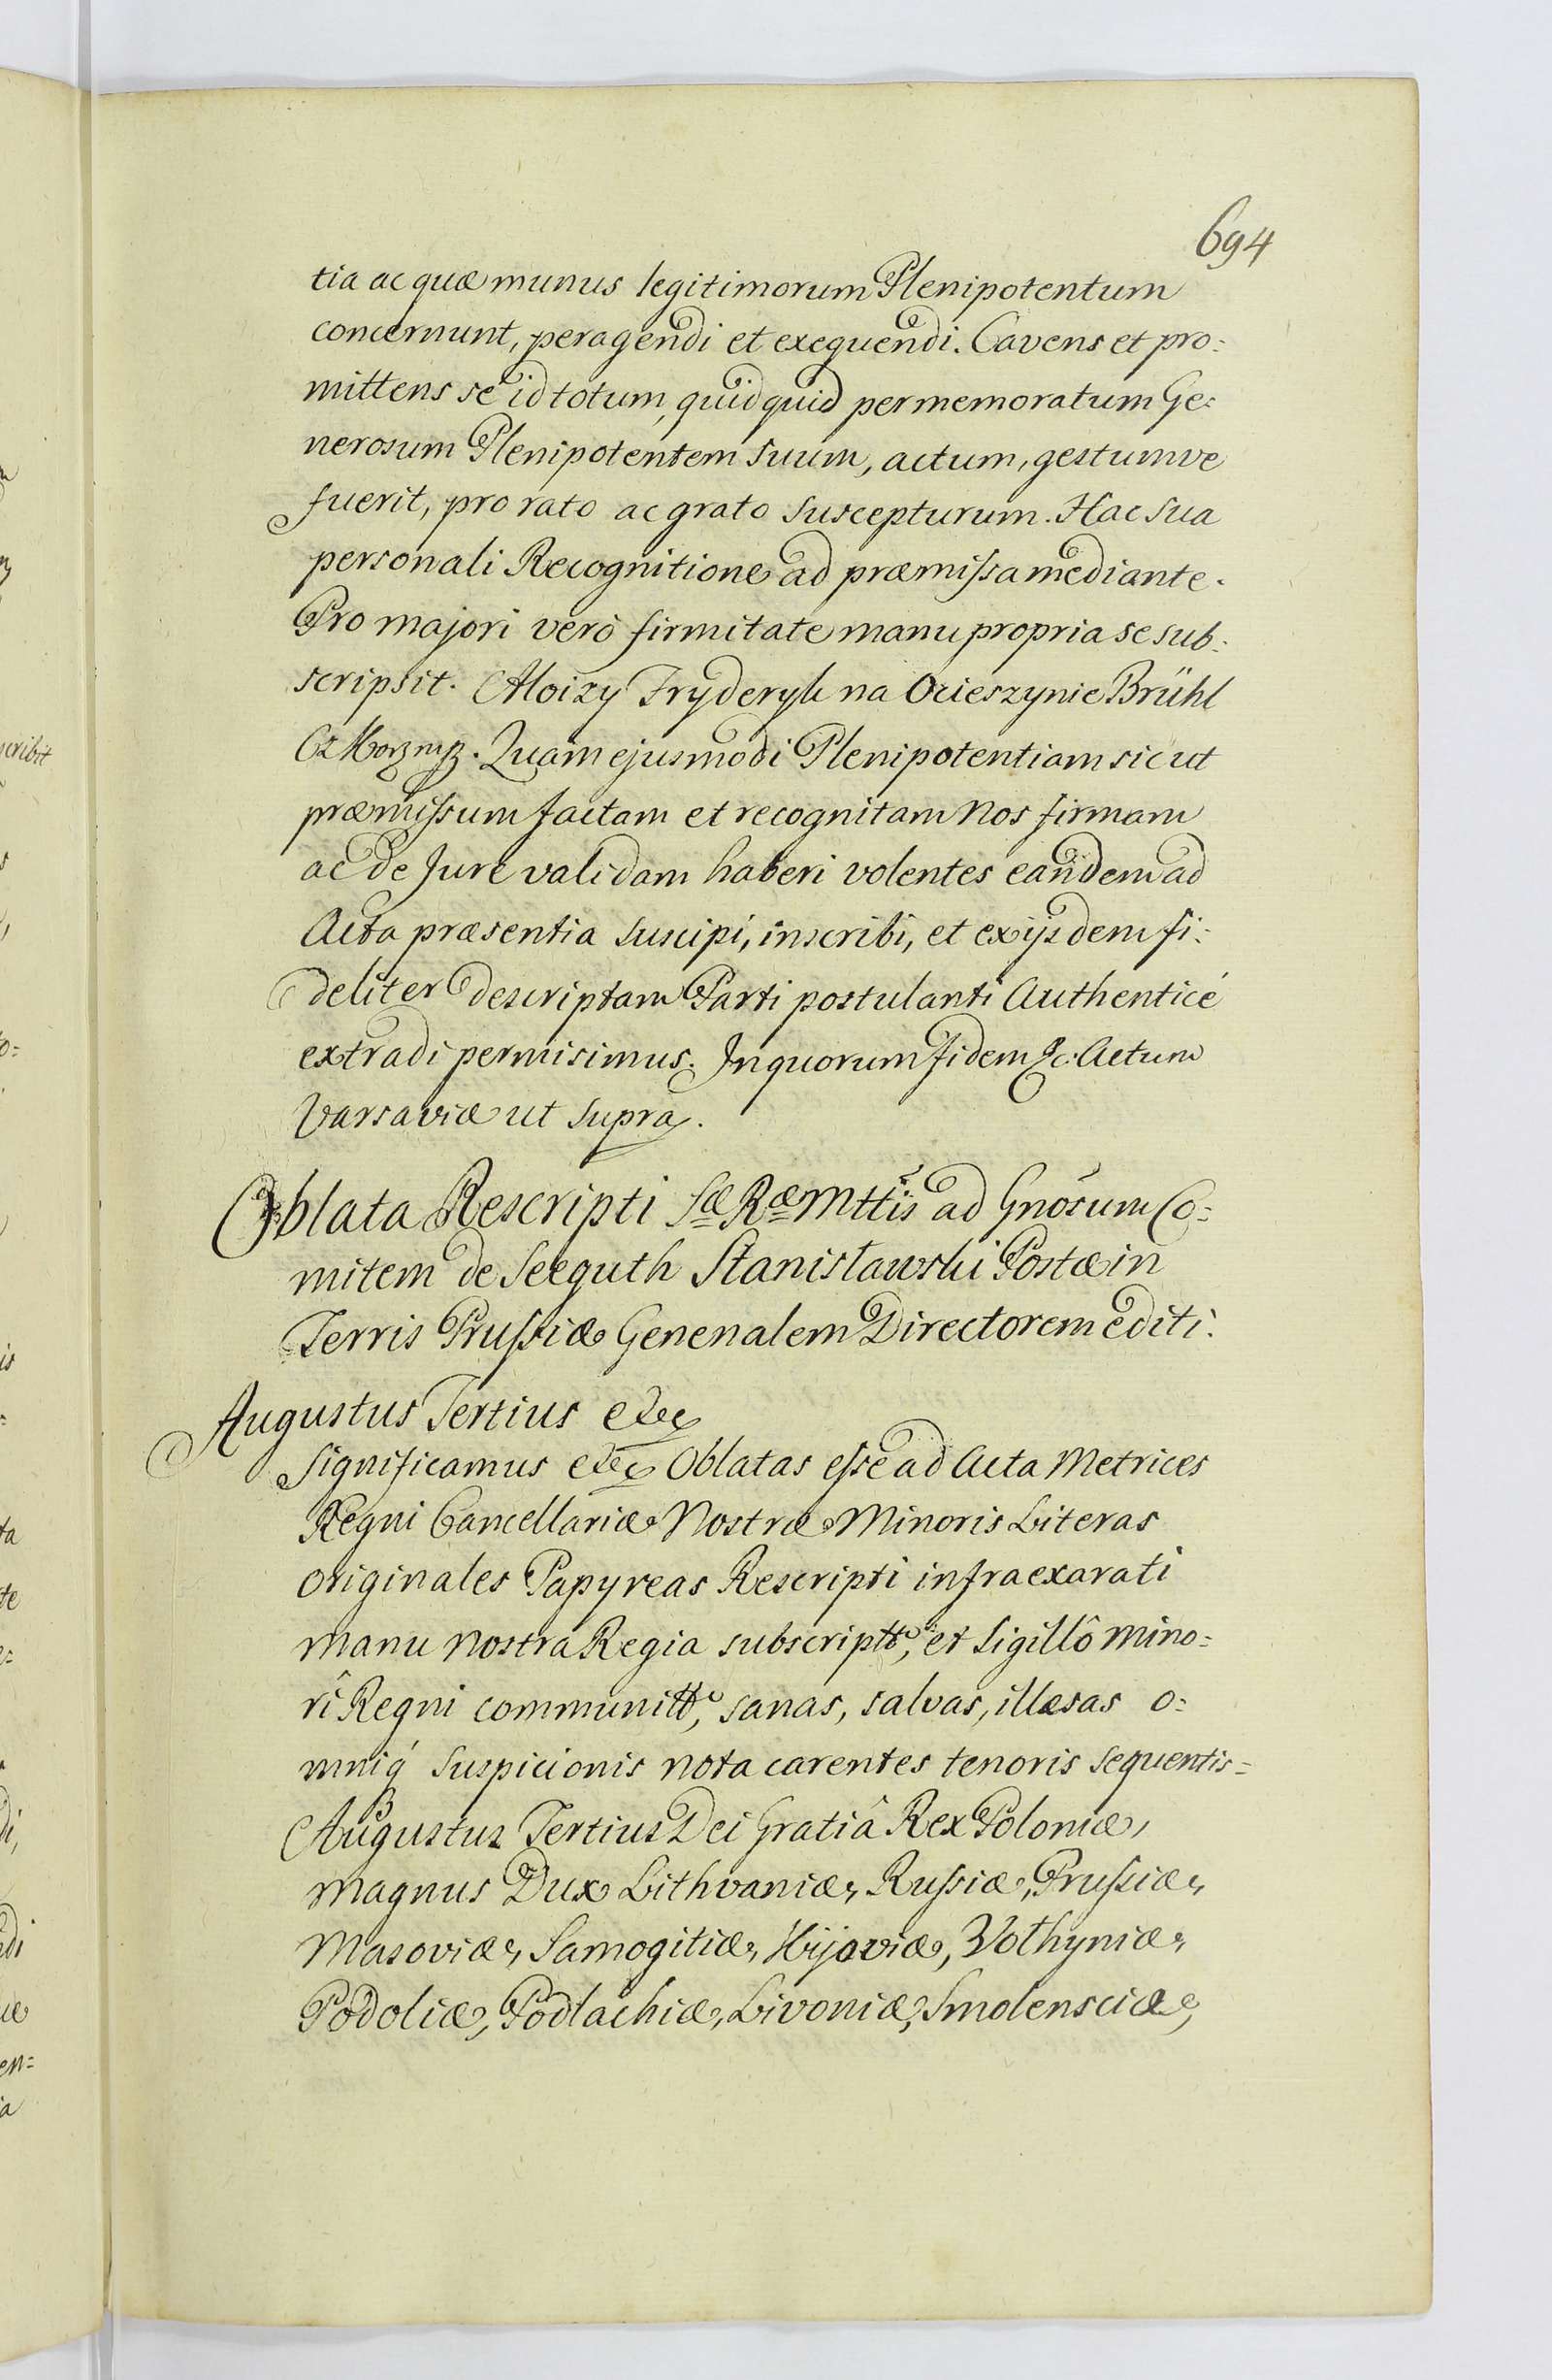 694
tia ac quæ munus legitimorum Plenipotentum
concernunt, peragendi et exequendi. Cavens et pro:
mittens se id totum, quidquid per memoratum Ge:
nerosum Plenipotentem suum, actum, gestumve
fuerit, pro rato ac grato suscepturum. Hac sua
personali Recognitione ad præmissa mediante.
Pro majori verò firmitate manu propria se sub:
scripsit. Aloizy Fryderyk na Ocieszynie Brühl
Quam ejusmodi Plenipotentiam sic ut
præmissum factam et recognitam Nos firmam
ac de Jure validam haberi volentes eandem ad
Acta præsentia suscipi, inscribi, et ex ijsdem fi:
deliter descriptam Parti postulanti Authenticé
extradi permisimus. In quorum fidem &c. Actum
Varsaviæ ut supra.
Oblata Rescripti Sæ Ræ Mttis ad Gnosum Co:
mitem de Seeguth Stanisławski Postæ in
Terris Prussiæ Genenalem Directorem editi.
Augustus Tertius etc
Significamus etc Oblatas esse ad Acta Metrices
Regni Cancellariæ Nostræ Minoris Literas
originales Papyreas Rescripti infra exarati
manu nostra Regia subscript, et Sigillô mino:
rî Regni communitt, sanas, salvas, illæsas o:
mniq́ suspicionis nota carentes tenoris sequentis=
Augustus Tertius Dei Gratiâ Rex Poloniæ,
Magnus Dux Lithvaniæ, Russiæ, Prussiæ,
Masoviæ, Samogitiæ, Kijoviæ, Volhyniæ,
Podoliæ, Podlachiæ, Livoniæ, Smolensciæ,